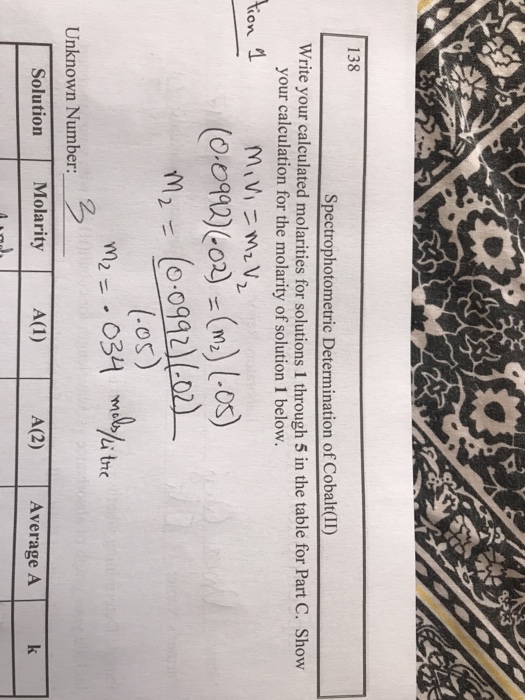 138
Spectrophotometric Determination of Cobalt(II)
Write your calculated molarities for solutions 1 through 5 in the table for Part C. Show
your calculation for the molarity of solution 1 below.
tion 1
M₁V₁ = M₂V₂
(0.0992)(.02) = (M₂)(.05)
M₂ = (0.0992)(.02)
(.05)
M₂ = .034 mols/litre
Unknown Number: 3
Solution Molarity A(1) A(2) Average A k